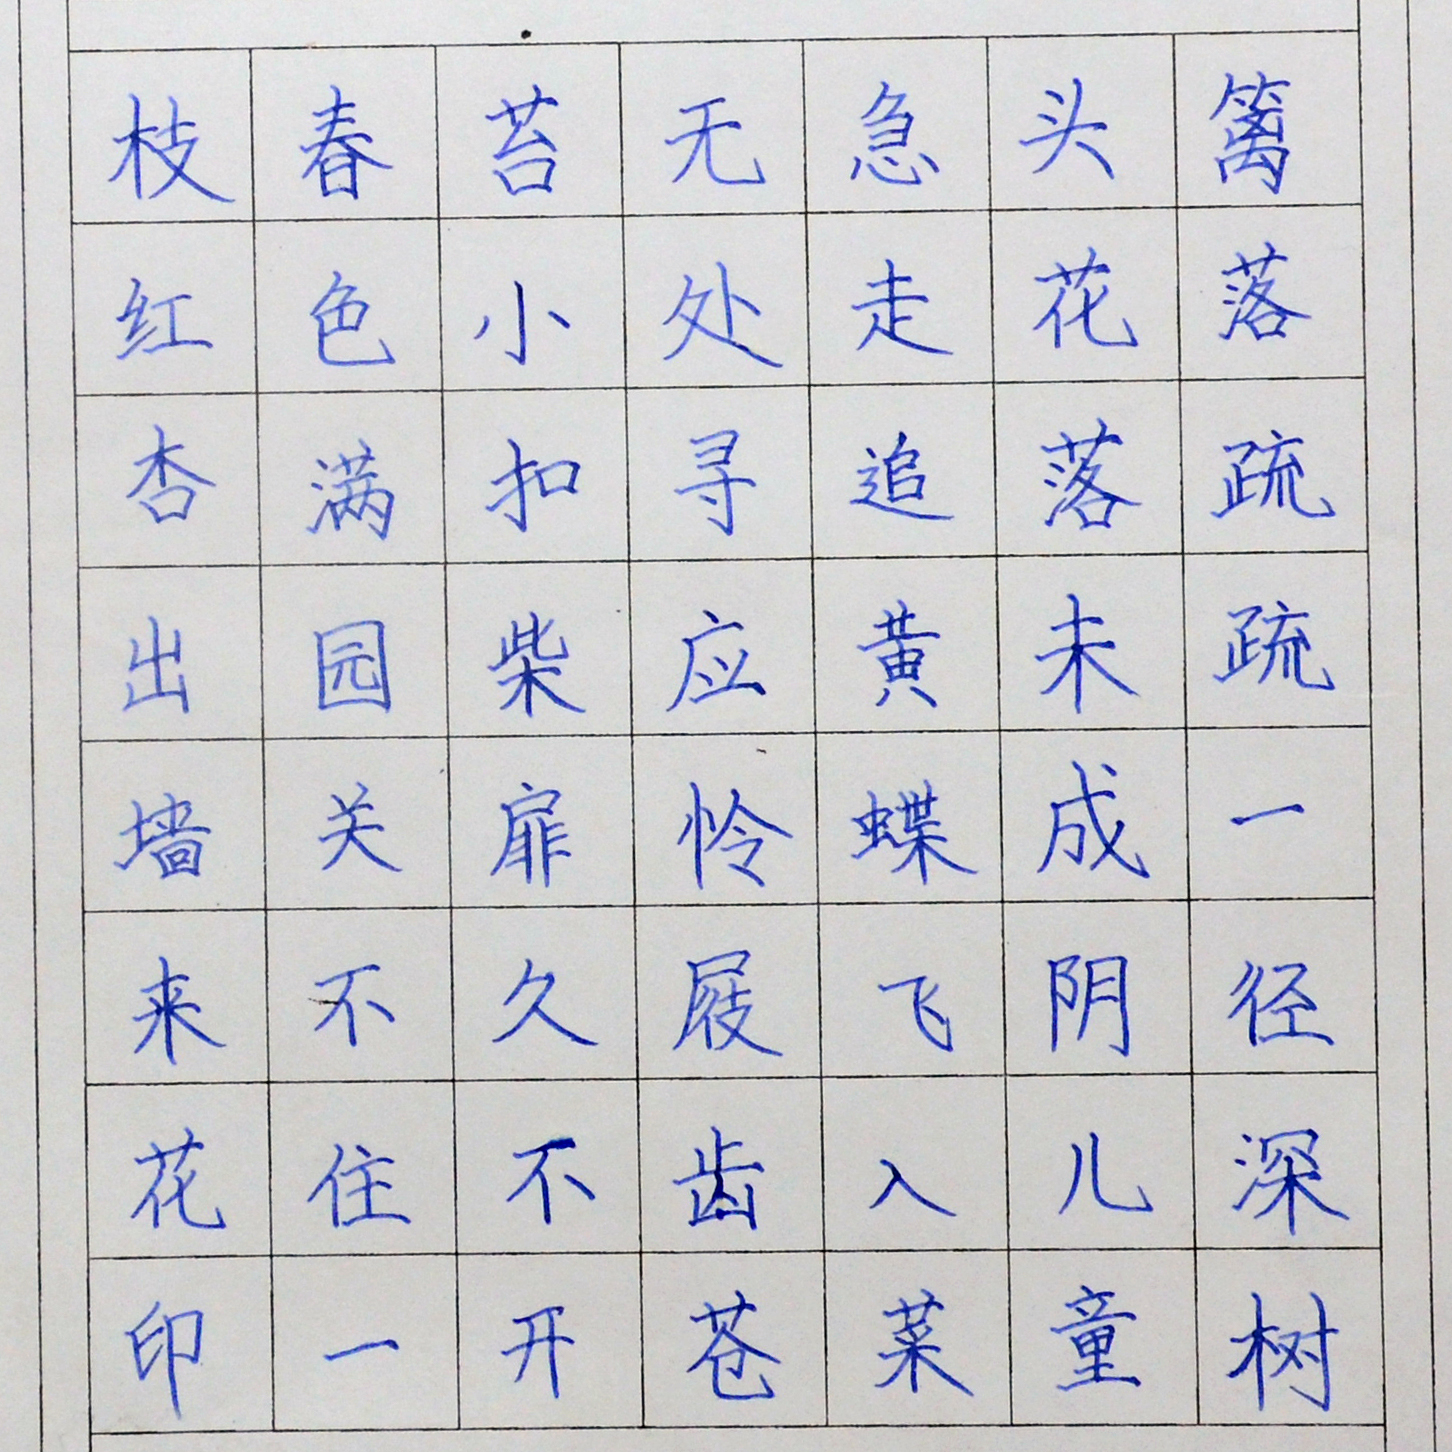 篱落疏疏一径深树
头花落未成阴儿童
急走追黄蝶飞入菜
无处寻应怜屐齿苍
苔小扣柴扉久不开
春色满园关不住一
枝红杏出墙来花印